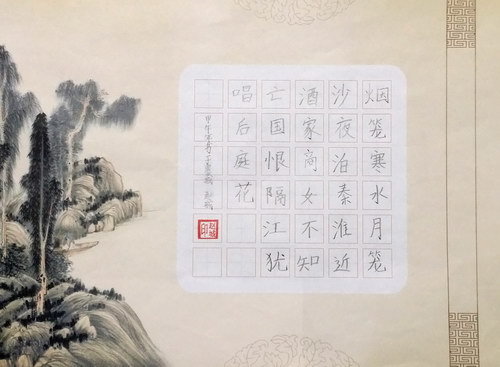 烟笼寒水月笼
沙夜泊秦淮近
酒家商女不知
亡国恨隔江犹
唱后庭花
甲午